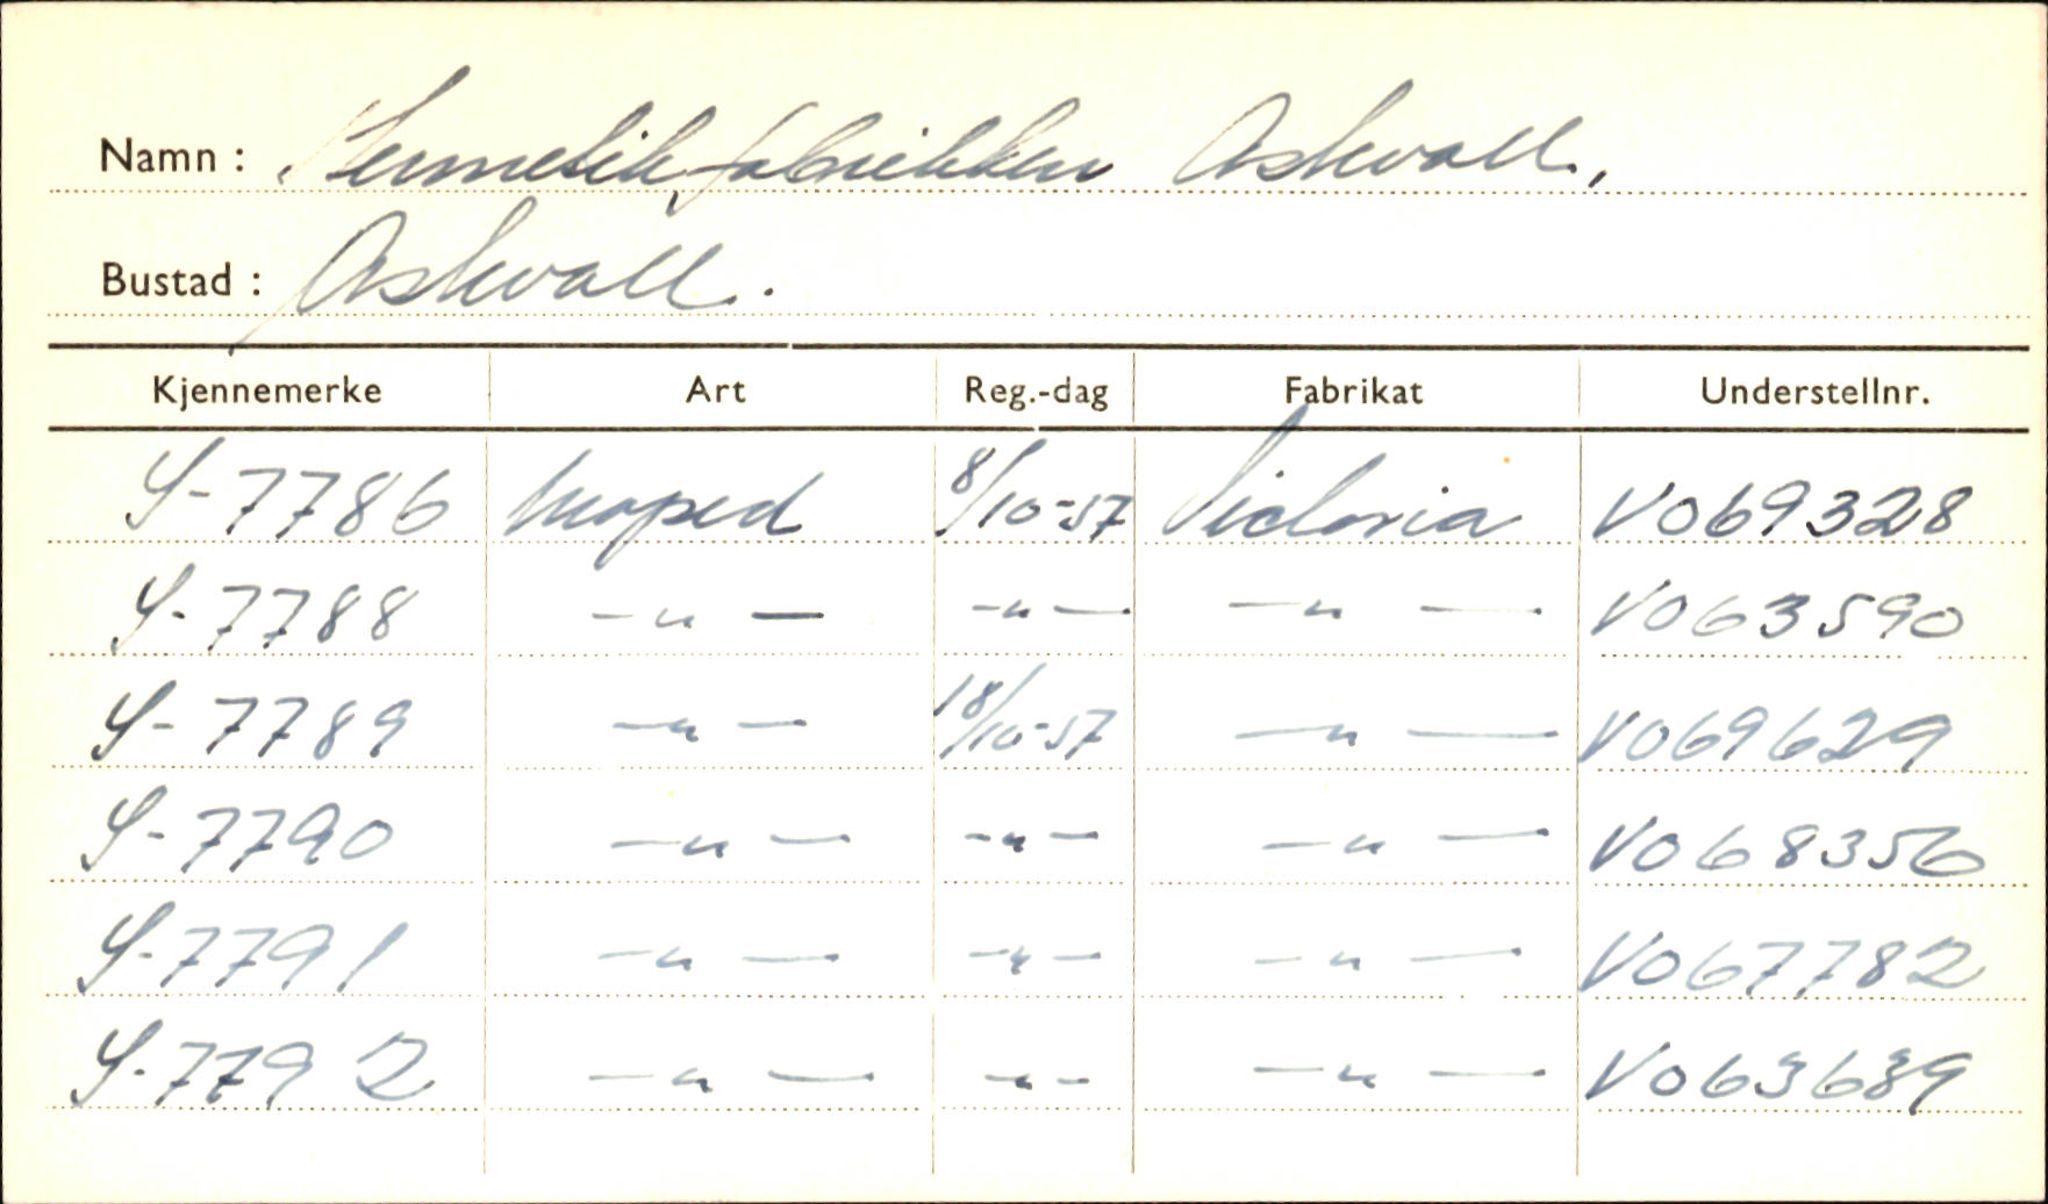 Namn : Hermetikfabrikken Askvoll,
Bustad : Askvoll.
Kjennemerke Art Reg.-dag Fabrikat Understellnr.
S-7786 Moped 8/10-57 Victoria V069328
S-7788 -"- -"- -"- V063590
S-7789 -"- 18/10-57 -"- V069629
S-7790 -"- -"- -"- V068356
S-7791 -"- -"- -"- V067782
S-7792 -"- -"- -"- V063689